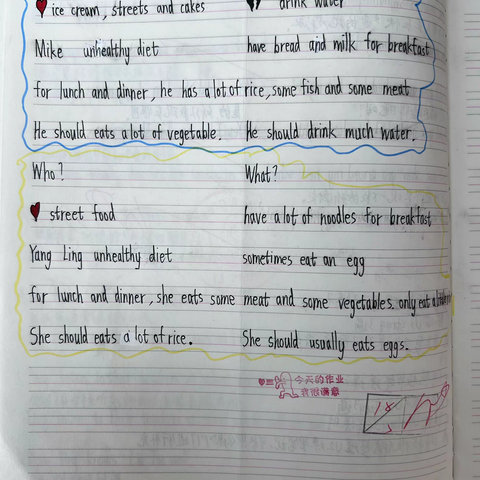 ice cream, streets and cakes drink water
Mike unhealthy diet have bread and milk for breakfast
for lunch and dinner, he has a lot of rice, some fish and some meat
He should eats a lot of vegetable. He should drink much water.
Who? What?
street food have a lot of noodles for breakfast
Yang Ling unhealthy diet sometimes eat an egg
for lunch and dinner, she eats some meat and some vegetables. only eat a
She should eats a lot of rice. She should usually eats eggs.
今天的作业
我很满意